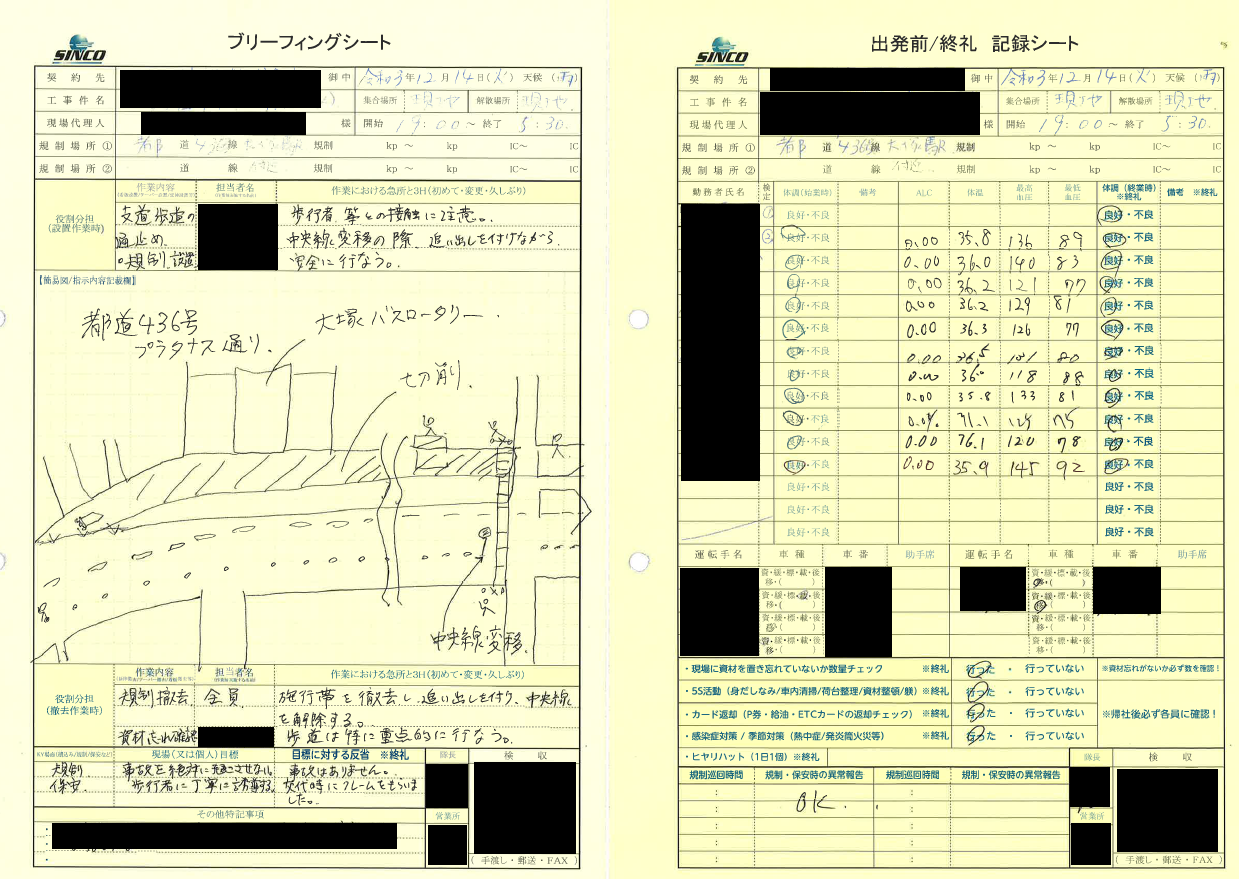 SINCO
ブリーフィングシート
契約先 御中 令和3年12月14日(火) 天候(雨)
工事件名 集合場所 現地 解散場所 現地
現場代理人 様 開始 19:00～終了 5:30.
規制場所① 都 道 436 線 大塚駅 規制 kp ～ kp IC～ IC
規制場所② 道 線 付近 規制 kp ～ kp IC～ IC
役割分担
(設置作業時)
作業内容 担当者名 作業における急所と3H(初めて・変更・久しぶり)
支道歩道の 歩行者等との接触に注意。
通止め. 中央線変移の際、追い出しを付けながら
○規制設置 安全に行なう。
【簡易図/指示内容記載欄】
都道436号
プラタナス通り.
大塚バスロータリー.
切削.
中央線変移.
役割分担
(撤去作業時)
作業内容 担当者名 作業における急所と3H(初めて・変更・久しぶり)
規制撤去 全員 施行帯を撤去し追い出しを付け、中央線
を解除する。
資材忘れ確認 歩道は特に重点的に行なう。
現場(又は個人)目標 目標に対する反省 ※終礼 隊長 検収
規制 事故を絶対に起こさせない。 事故はありません。
保安. 歩行者に丁寧に誘導する. 交代時にクレームをもらいま
した。
その他特記事項 営業所
( 手渡し・郵送・FAX )
SINCO
出発前/終礼 記録シート
契約先 御中 令和3年12月14日(火) 天候(雨)
工事件名 集合場所 現地 解散場所 現地
現場代理人 様 開始 19:00～終了 5:30.
規制場所① 都 道 436線 大塚駅 規制 kp ～ kp IC～ IC
規制場所② 道 線 付近 規制 kp ～ kp IC～ IC
勤務者氏名 検定 体調(始業時) 備考 ALC 体温 最高血圧 最低血圧 体調(終業時)※終礼 備考 ※終礼
① 良好・不良 良好・不良
② 良好・不良 0.00 35.8 136 89 良好・不良
良好・不良 0.00 36.0 140 83 良好・不良
良好・不良 0.00 36.2 121 77 良好・不良
良好・不良 0.00 36.2 129 81 良好・不良
良好・不良 0.00 36.3 126 77 良好・不良
良好・不良 0.00 36.5 80 良好・不良
良好・不良 0.00 118 88 良好・不良
良好・不良 0.00 35.8 133 81 良好・不良
良好・不良 75 良好・不良
良好・不良 0.00 120 78 良好・不良
良好・不良 0.00 35.9 145 92 良好・不良
良好・不良 良好・不良
良好・不良 良好・不良
良好・不良 良好・不良
運転手名 車種 車番 助手席 運転手名 車種 車番 助手席
資・緩・標・載・後 資・緩・標・載・後
移・( ) 移・( )
資・緩・標・載・後 資・緩・標・載・後
移・( ) 移・( )
資・緩・標・載・後 資・緩・標・載・後
移・( ) 移・( )
資・緩・標・載・後 資・緩・標・載・後
移・( ) 移・( )
・現場に資材を置き忘れていないか数量チェック ※終礼 行った ・ 行っていない ※資材忘れがないか必ず数を確認！
・5S活動(身だしなみ/車内清掃/荷台整理/資材整頓/躾) ※終礼 行った ・ 行っていない
・カード返却(P券・給油・ETCカードの返却チェック) ※終礼 行った ・ 行っていない ※帰社後必ず各員に確認！
・感染症対策 / 季節対策 (熱中症/発炎筒火災等) ※終礼 行った ・ 行っていない
・ヒヤリハット(1日1個) ※終礼 隊長 検収
規制巡回時間 規制・保安時の異常報告 規制巡回時間 規制・保安時の異常報告
: OK. :
: :
: : 営業所
: :
( 手渡し・郵送・FAX )